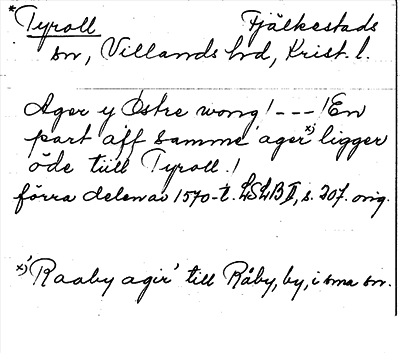 *Tyroll Fjälkestads
sn, Villands hd, Krist. l.
Ager y Østre wong! --- ! En
part aff samme ager x) ligger
öde tiill Tyroll. !
förra delen av 1570-t. LSLB II, s. 207. orig.
x) 'Raaby agir' till Råby, by, i sma sn.